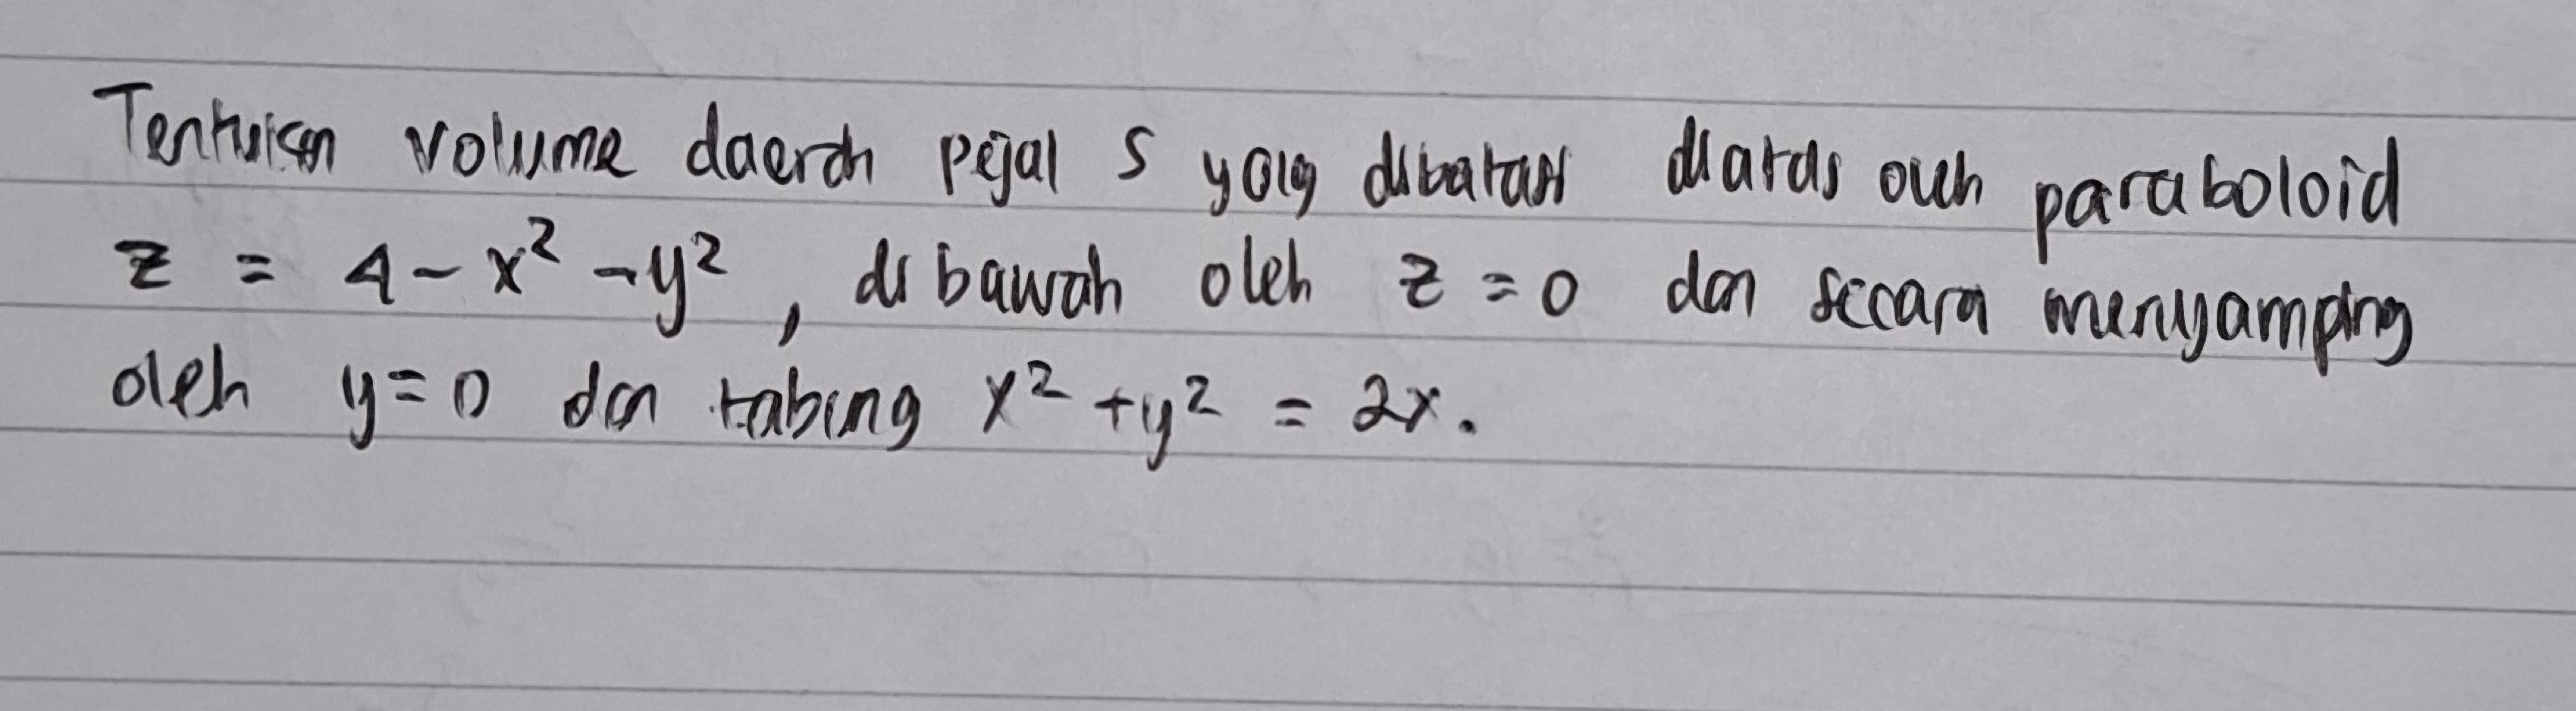 Tentukan volume daerah pejal S yang dibatasi diatas oleh paraboloid
z = 4 - x² - y², di bawah oleh z = 0 dan secara menyamping
oleh y = 0 dan tabung x² + y² = 2x.